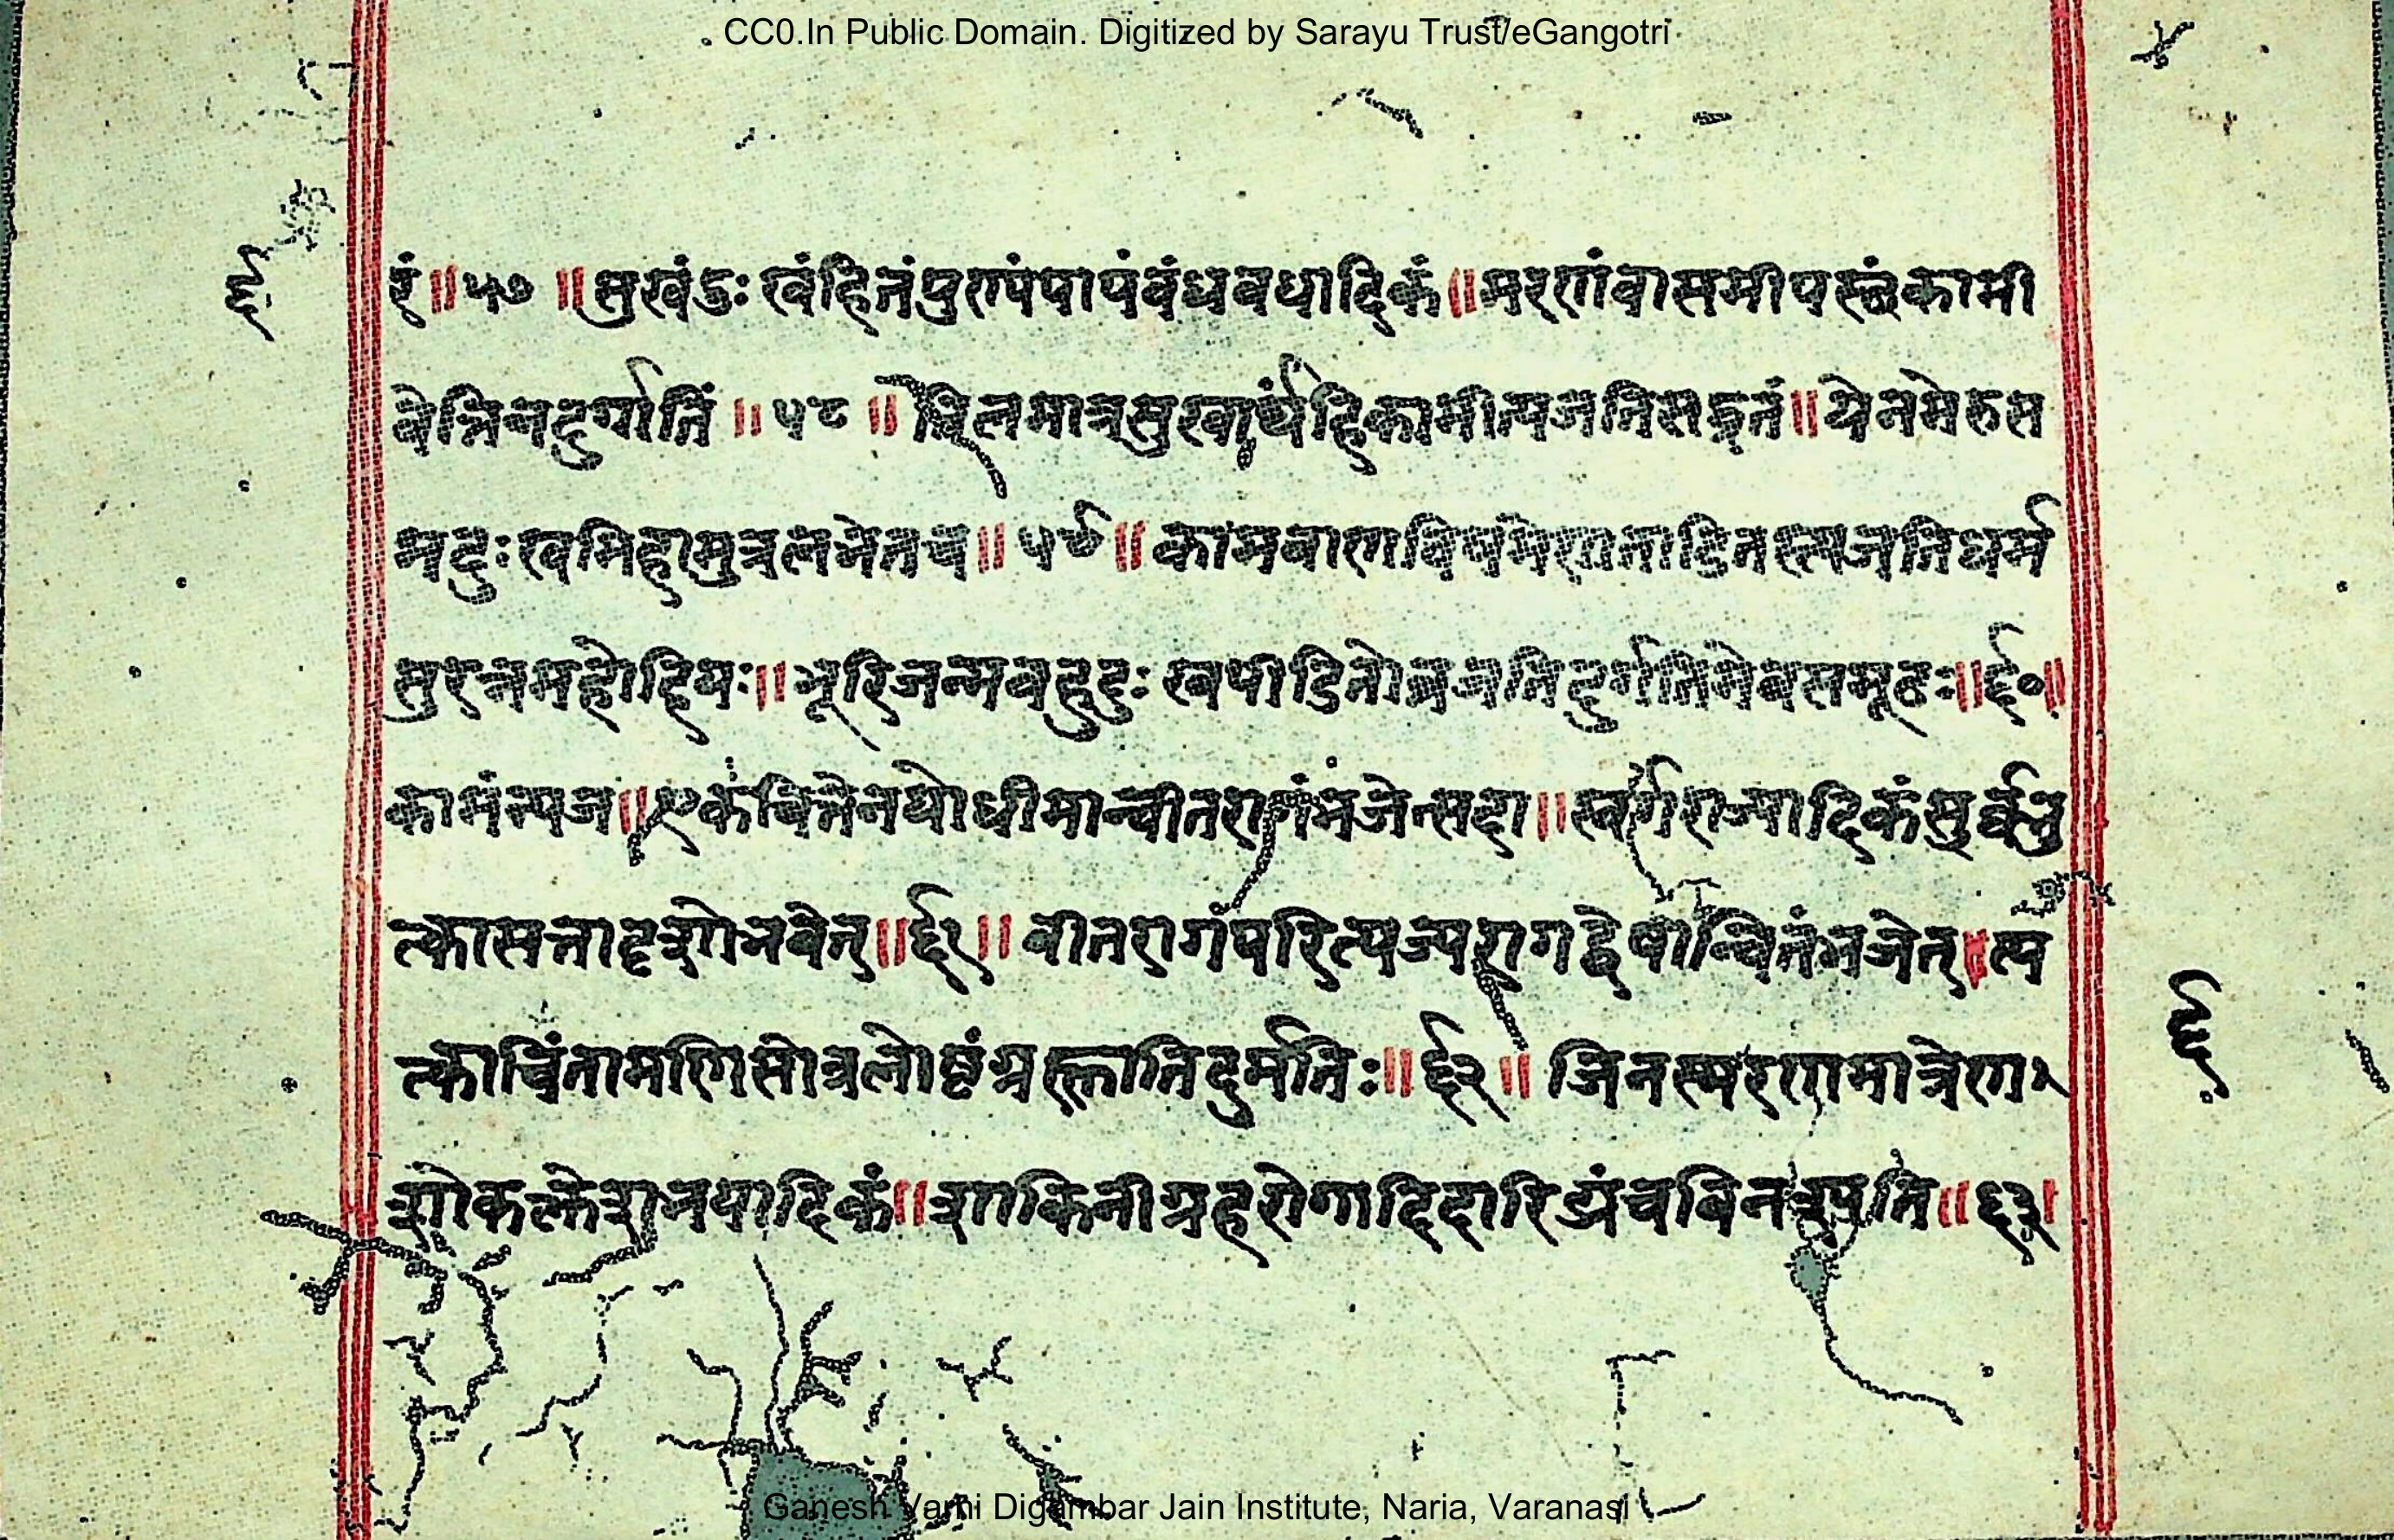 CC0.In Public Domain. Digitized by Sarayu Trust/eGangotri
६
रं॥५७॥सुखंदुःखंहितंपुण्यंपापंबंधवधादिकं॥मरणंवासमीपस्थंकामी
वेत्तिनदुर्गतिं॥५८॥तिलमात्रसुखार्थंहिकामीत्यजतिसद्व्रतं॥येनमेरुस
मदुःखमिहामुत्रलभेतच॥५९॥कामबाणविषमेणताडितस्त्यजतिधर्म
सुरत्नमहोद्धियः॥भूरिजन्मबहुदुःखपीडितोव्रजतिदुर्गतिमेवसमूढः॥६०॥
कामंत्यज॥एकचित्तेनयोधीमान्वीतरागंभजेत्सदा॥स्वर्गराज्यादिकंसुर्वंभु
त्कासत्तादृशोभवेत्॥६१॥वीतरागंपरित्यज्यरागद्वेषान्वितंभजेत्।त्य
त्काचिंतामणिंसोत्रलोष्टंग्रह्णातिदुर्मतिः॥६२॥जिनस्मरणमात्रेण
६
शोकक्लेशभयादिकं॥शाकिनीग्रहरोगादिदारिद्र्यंचविनश्यति॥६३।
Ganesh Varni Digambar Jain Institute, Naria, Varanasi